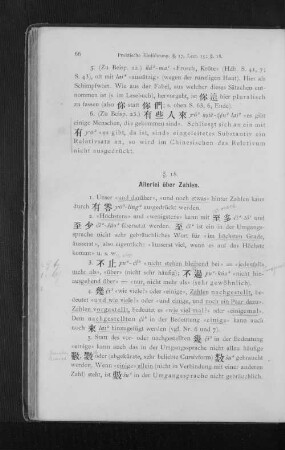 66
Praktische Einführung. § 17. Satz 151; § 18.
5. (Zu Beisp. 22.) há²-ma¹ »Frosch, Kröte«
S. 48, oft mit lai⁴ »aussätzig« (wegen der runzligen Haut). Hier als
Schimpfwort. Wie aus der Fabel, aus welcher dieses Sätzchen ent-
nommen ist, hervorgeht, ist 你 hier pluralisch
zu fassen (also 你 statt 你們; s. oben S. 68, 6, Ende).
6. (Zu Beisp. 22.) 有些人來 »es gibt
einige Menschen, die gekommen sind«. Schliesst sich also an ein mit
有 yu³ »es gibt, da ist, sind« eingeleitetes Substantiv ein
Relativsatz an, so wird im Chinesischen das Relativum
nicht ausgedrückt!
§ 18.
Allerlei über Zahlen.
1. Unser »und darüber«, »und noch etwas« hinter Zahlen kann
durch 有零 yu³-ling² ausgedrückt werden.
2. »Höchstens« und »wenigstens« kann mit 至多 und
至少 übersetzt werden. ist ein in der Umgangs-
sprache nicht sehr gebräuchliches Wort für »im höchsten Grade,
äusserst«, also eigentlich: »äusserst viel, wenn es auf das Höchste
kommt« u. s. w.
3. 不止 »nicht stehen bleibend bei« = »jedenfalls
mehr als«, »über« (nicht sehr häufig); 不過 »nicht hin-
ausgehend über« = »nur, nicht mehr als« (sehr gewöhnlich).
4. 幾 »wie viele« oder »einige«, Zahlen nachgestellt, be-
deutet »und wie viele« oder »und einige, und noch ein Paar dazu«.
Zahlen vorgestellt, bedeutet es »wie viel mal« oder »einigemal«.
Dem nachgestellten in der Bedeutung »einige« kann auch
noch 來 lai² hinzugefügt werden (vgl. Nr. 6 und 7).
5. Statt des vor- oder nachgestellten 幾 in der Bedeutung
»einige« kann auch das in der Umgangssprache nicht allzu häufige
數, 數 oder (abgekürzte, sehr beliebte Cursivform) gebraucht
werden. Wenn »einige« allein (nicht in Verbindung mit einer anderen
Zahl) steht, ist in der Umgangssprache nicht gebräuchlich.